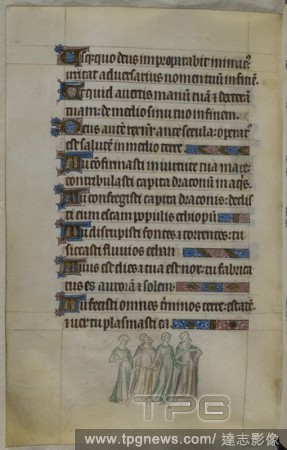 Usquequo deus improperabit inimic'
irritat adversarius nomen tuū in finē.
Ut quid avertis manū tuā & dexterā
tuam: de medio sinu tuo in finem.
Deus autē rex nr̄ ante secula: operat'
est salutē in medio terre
Tu cōfirmasti in virtute tua mare:
contribulasti capita draconū in aq̄s.
Tu confregisti capita draconis: dedis
ti eum escam populis ethiopū
Tu dirupisti fontes & torrentes: tu
siccasti fluvios ethan
Tuus est dies & tua est nox: tu fabrica
tus es aurorā & solem
Tu fecisti omnes t'minos terre: estatē
& ver tu plasmasti ea
TPG
www.tpgnews.com/ 達志影像